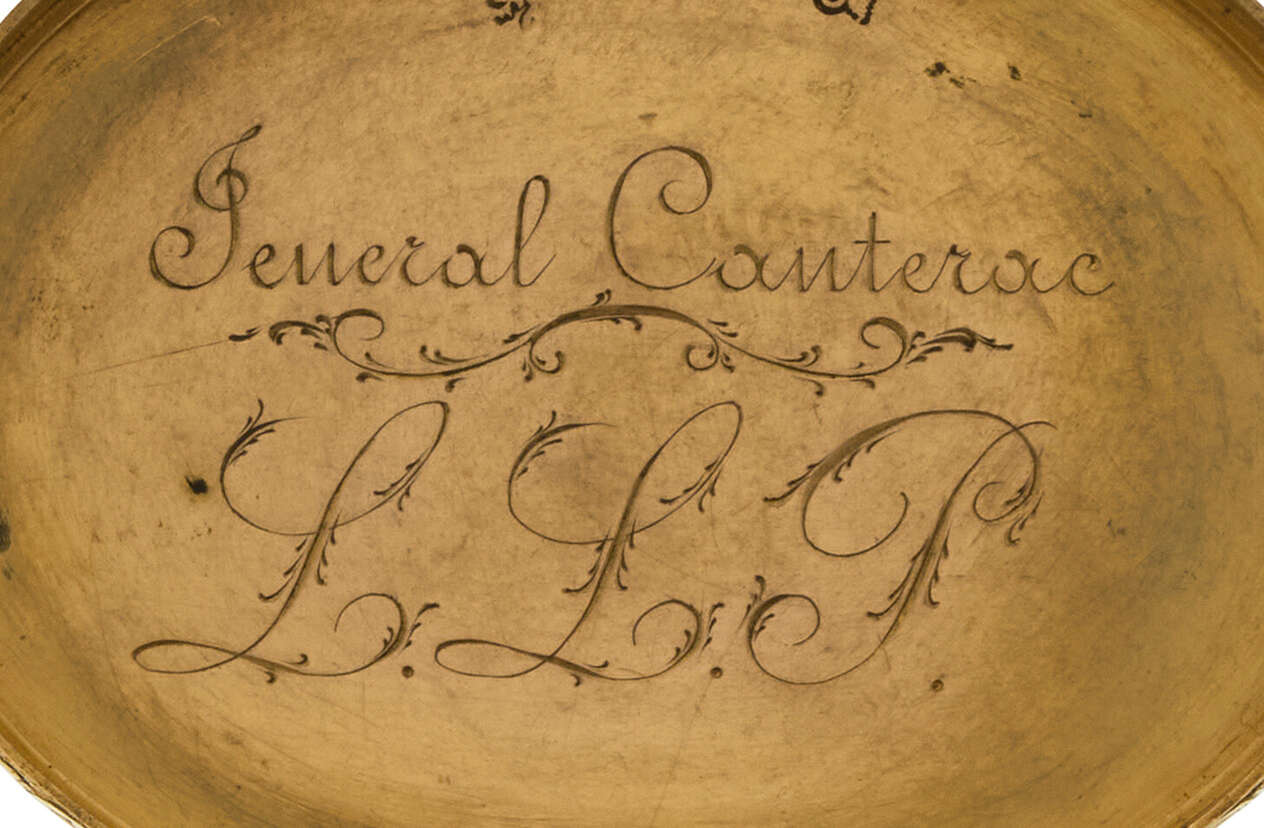 Jeneral Canterac
L. L. P.